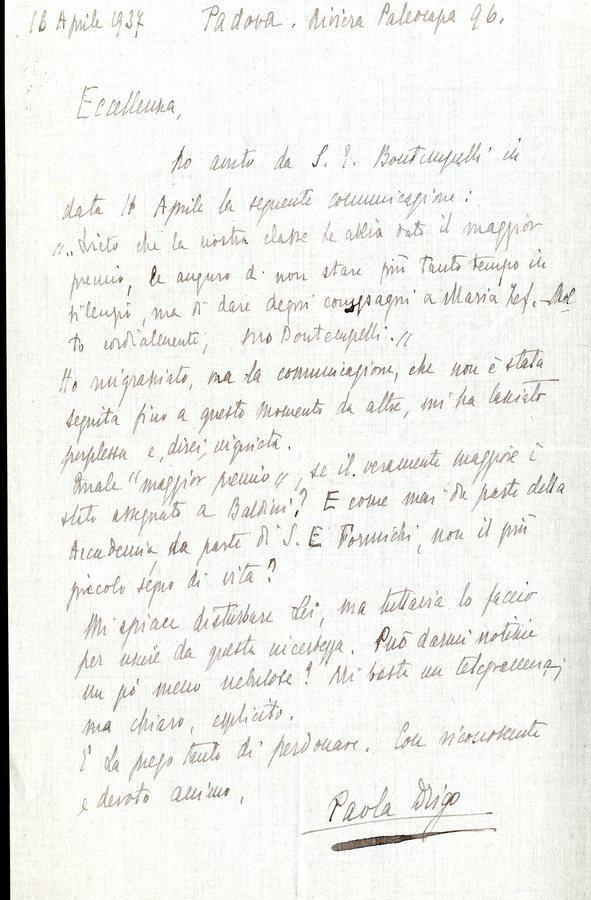 16 Aprile 1937 Padova. Riviera Paleocapa 96.
Eccellenza,
Ho avuto da S. E. Bontempelli in
data 14 Aprile la seguente comunicazione:
"Lieto che la nostra classe Le abbia dato il maggior
premio, Le auguro di non stare più tanto tempo in
silenzio, ma di dare degni compagni a Maria Zef. - Mol
to cordialmente, suo Bontempelli."
Ho ringraziato, ma la comunicazione, che non è stata
seguita fino a questo momento da altre, mi ha lasciato
perplessa e, direi, inquieta.
Quale "maggior premio", se il veramente maggiore è
stato assegnato a Baldini? E come mai da parte della
Accademia, da parte di S. E Formichi, non il più
piccolo segno di vita?
Mi spiace disturbare Lei, ma tuttavia lo faccio
per uscire da questa incertezza. Può darmi notizie
un pó meno nebulose? Mi basta un telegramma,
ma chiaro, esplicito.
E La prego tanto di perdonare. Con riconoscente
e devoto animo,
Paola Drigo